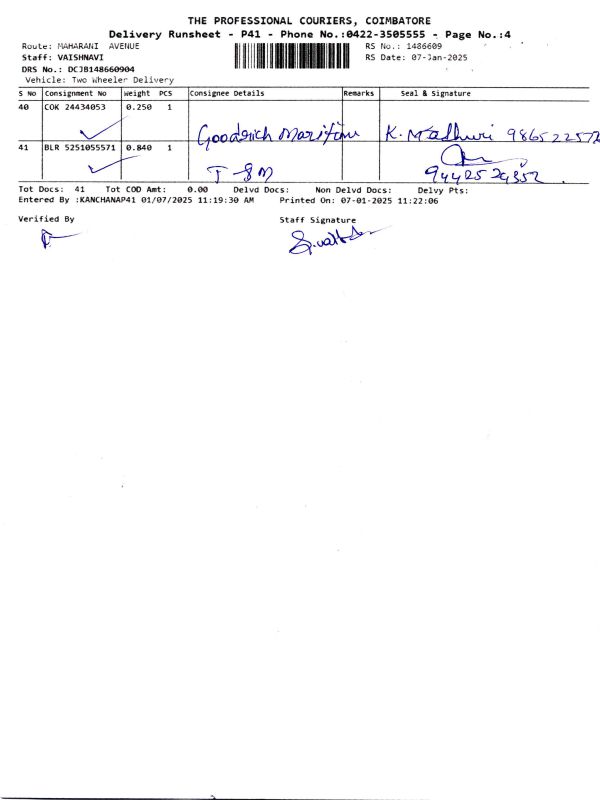 THE PROFESSIONAL COURIERS, COIMBATORE
Delivery Runsheet - P41 - Phone No.:0422-3505555 - Page No.:4
Route: MAHARANI AVENUE RS No.: 1486609
Staff: VAISHNAVI RS Date: 07-Jan-2025
DRS No.: DCJB148660904
Vehicle: Two Wheeler Delivery
S No Consignment No Weight PCS Consignee Details Remarks Seal & Signature
40 COK 24434053 0.250 1
Goodrich Maritime K. Madhuri
41 BLR 5251055571 0.840 1
Tot Docs: 41 Tot COD Amt: 0.00 Delvd Docs: Non Delvd Docs: Delvy Pts:
Entered By :KANCHANAP41 01/07/2025 11:19:30 AM Printed On: 07-01-2025 11:22:06
Verified By Staff Signature